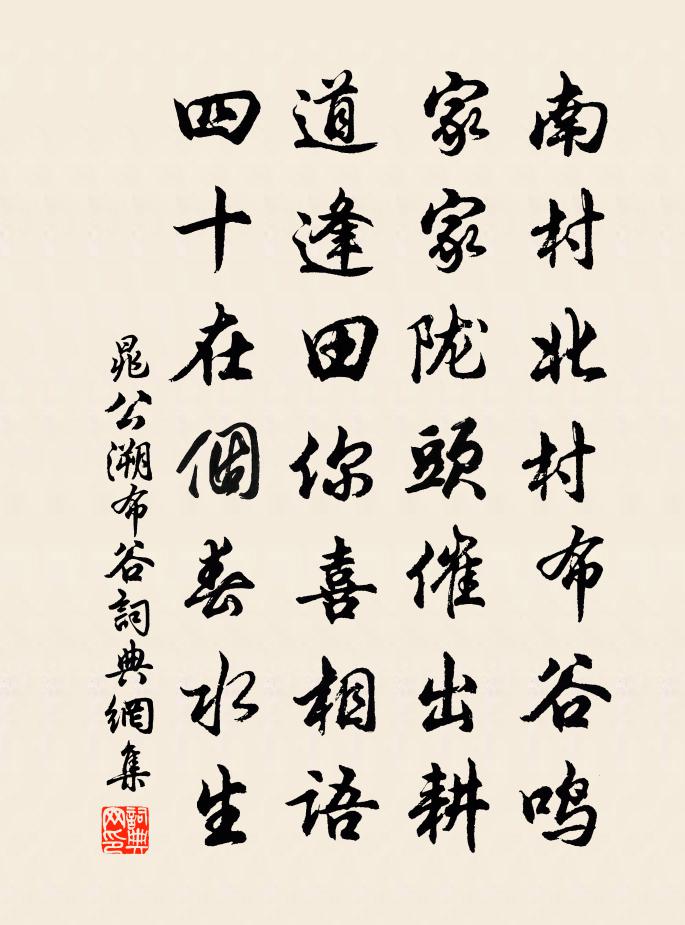 南村北村布谷鸣
家家陇頭催出耕
道逢田你喜相语
四十在個春水生
晁公溯布谷詞典網集
詞典網印